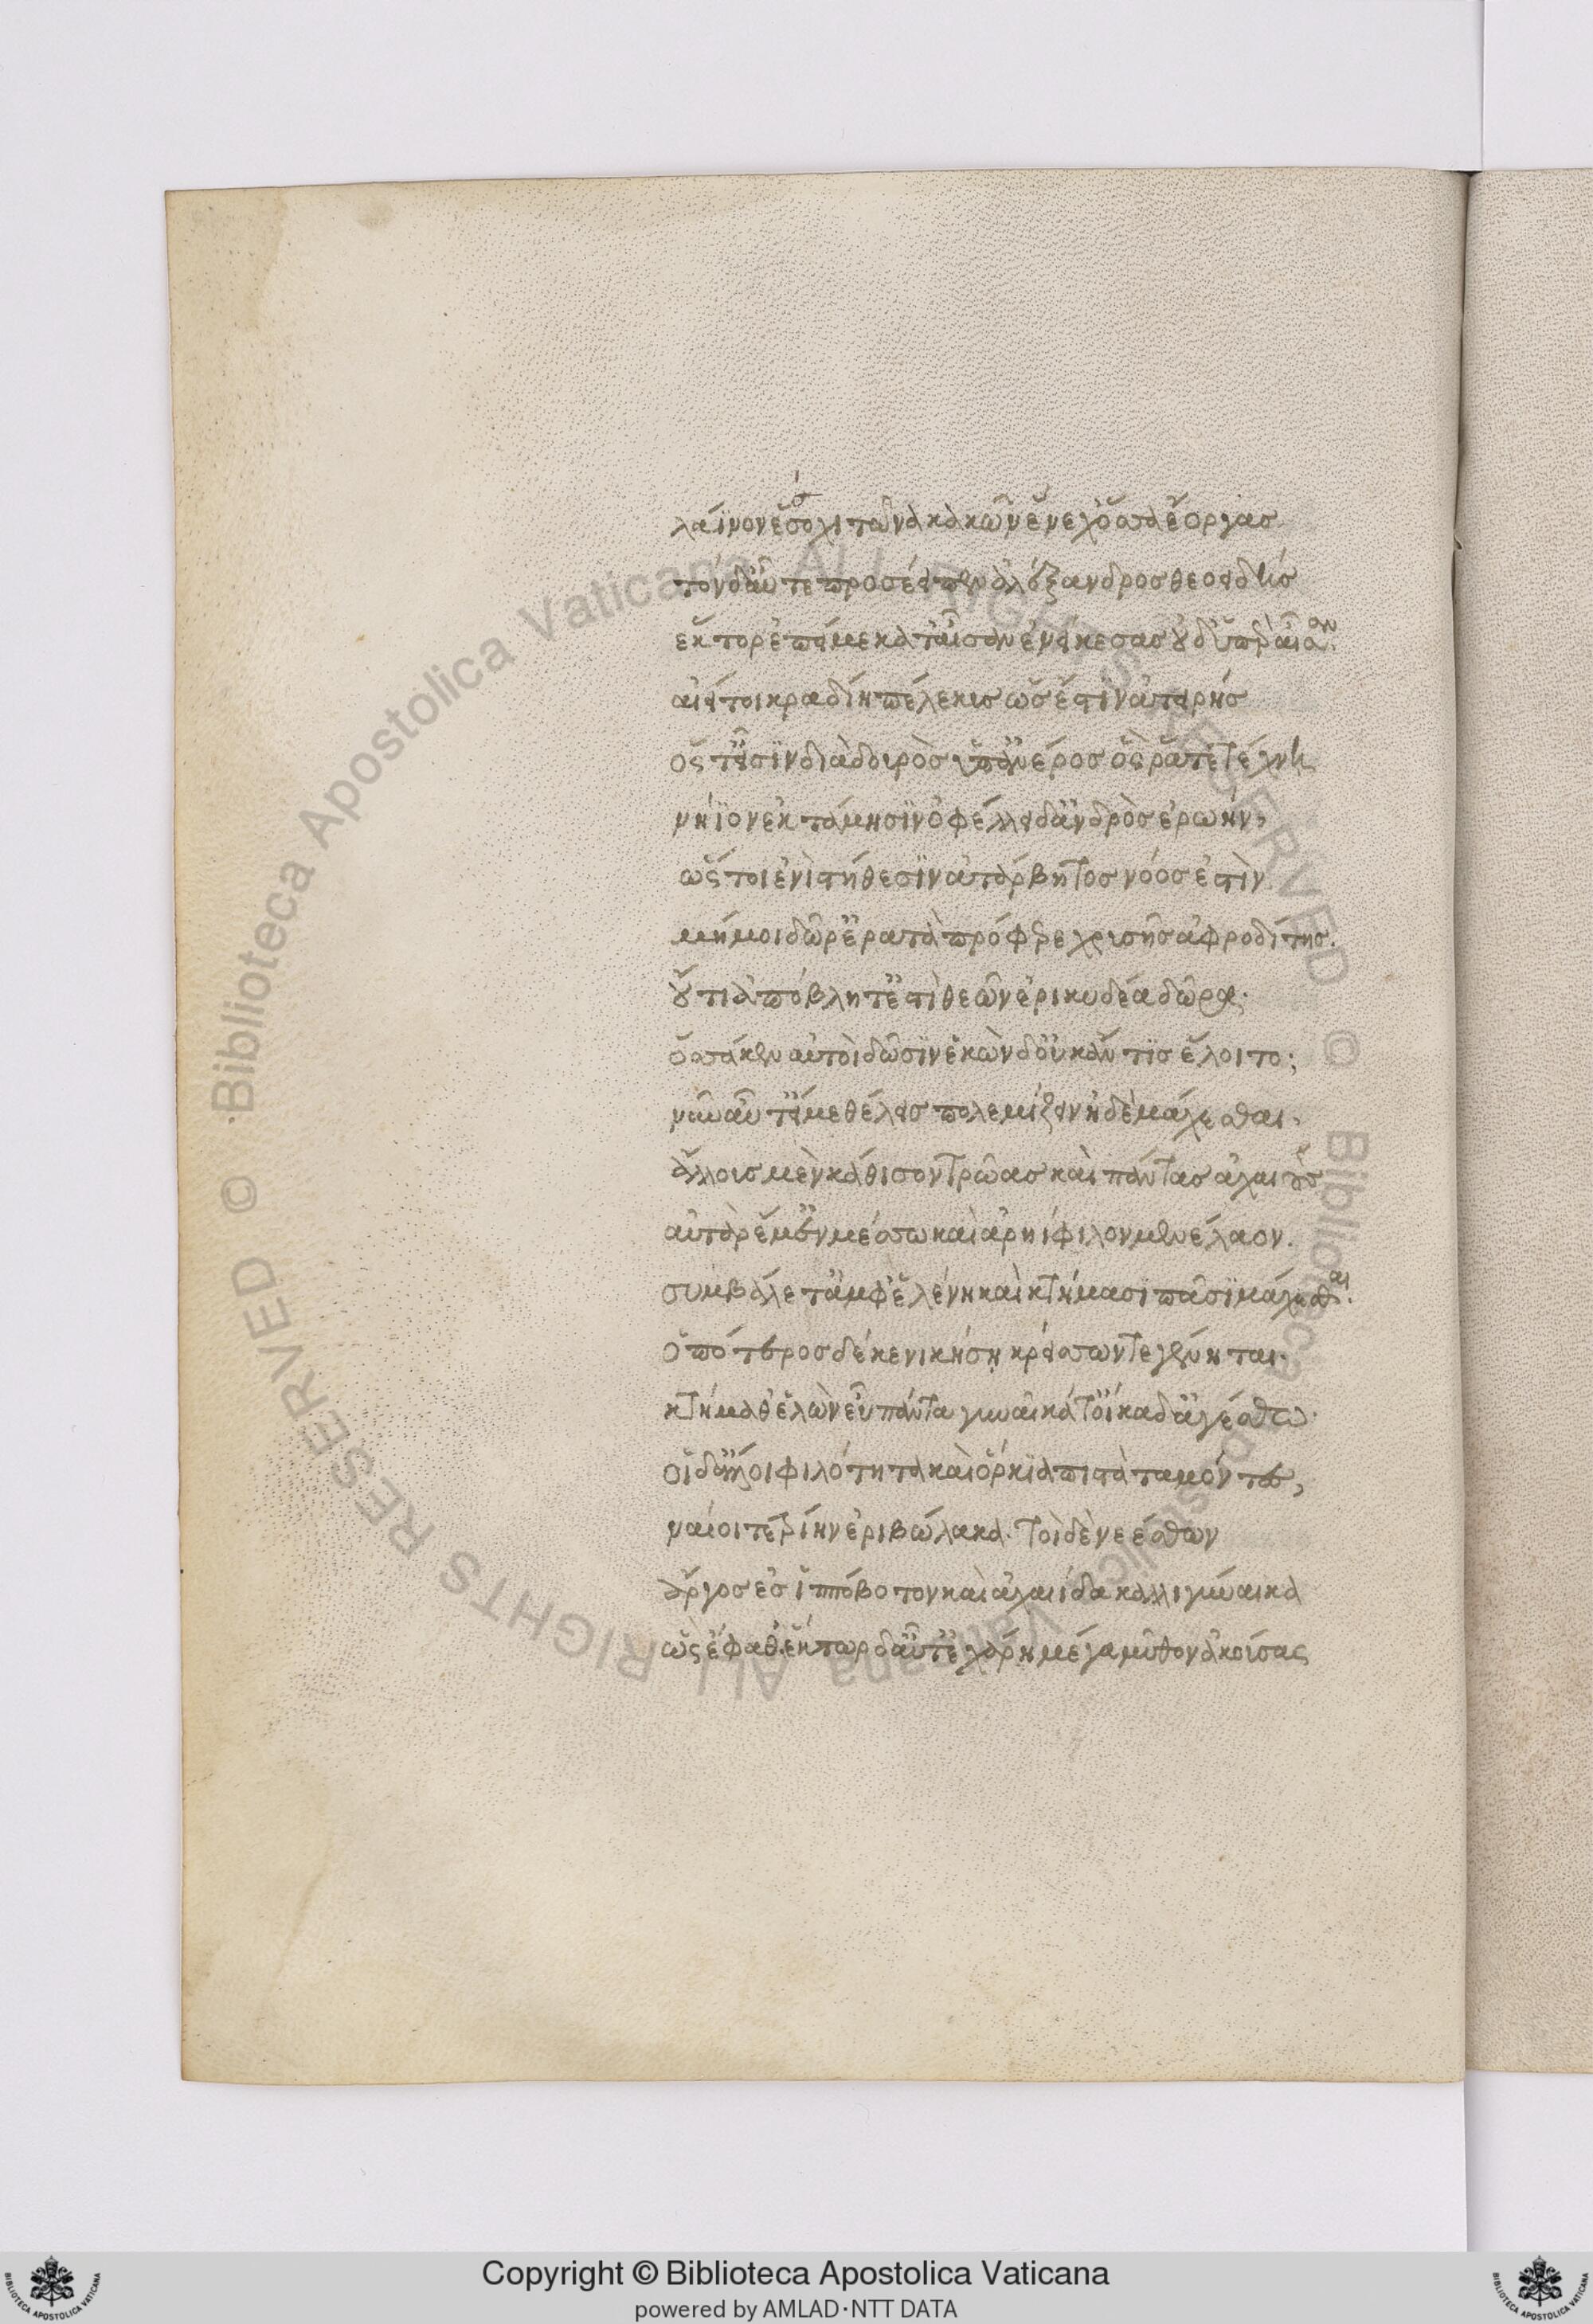 λάϊνον ἕσσο χιτῶνα κακῶν ἕνεχ' ὅσσα ἔοργας
τὸν δ' αὖτε προσέειπεν ἀλέξανδρος θεοειδής
ἕκτορ ἐπεί με κατ' αἶσαν ἐνείκεσας οὐδ' ὑπὲρ αἶσαν.
αἰεί τοι κραδίη πέλεκυς ὥς ἐστιν ἀτειρής
ὅς τ' εἶσιν διὰ δουρὸς ὑπ' ἀνέρος ὅς ῥά τε τέχνη
νήϊον ἐκτάμησιν ὀφέλλει δ' ἀνδρὸς ἐρωήν,
ὥς τοι ἐνὶ στήθεσιν ἀτάρβητος νόος ἐστὶν
μή μοι δῶρ' ἐρατὰ πρόφερε χρυσῆς ἀφροδίτης.
οὔ τι ἀπόβλητ' ἐστὶ θεῶν ἐρικυδέα δῶρα.
ὅσσά κεν αὐτοὶ δῶσιν ἑκὼν δ' οὐκ ἄν τις ἕλοιτο;
νῦν αὖτ' εἴ με θέλεις πολεμίζειν ἠδὲ μάχεσθαι.
ἄλλους μὲν κάθισον τρῶας καὶ πάντας ἀχαιούς
αὐτὰρ ἔμ' ἐν μέσσω καὶ ἀρηίφιλον μενέλαον.
συμβάλετ' ἀμφ' ἑλένη καὶ κτήμασι πᾶσι μάχεσθαι.
ὁππότερος δέ κε νικήση κρείσσων τε γένηται.
κτήμαθ' ἑλὼν εὖ πάντα γυναῖκά τ' οἴκαδ' ἀγέσθω.
οἱ δ' ἄλλοι φιλότητα καὶ ὅρκια πιστὰ ταμόντες,
ναίοιτε τροίην ἐριβώλακα. τοὶ δὲ νεέσθων
ἄργος ἐς ἱππόβοτον καὶ ἀχαιίδα καλλιγύναικα
ὣς ἔφαθ' ἕκτωρ δ' αὖτ' ἐχάρη μέγα μῦθον ἀκούσας
Copyright © Biblioteca Apostolica Vaticana
powered by AMLAD·NTT DATA